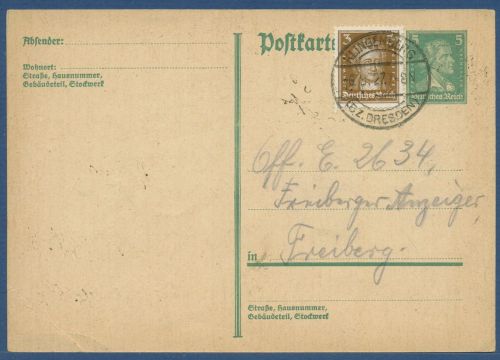 Absender:
Wohnort:
Straße, Hausnummer,
Gebäudeteil, Stockwerk
Postkarte
3
Deutsches Reich
5 5
Deutsches Reich
KLINGENBERG
(BZ. DRESDEN)
Off. E. 2634,
Freiberger Anzeiger,
in Freiberg.
Straße, Hausnummer,
Gebäudeteil, Stockwerk